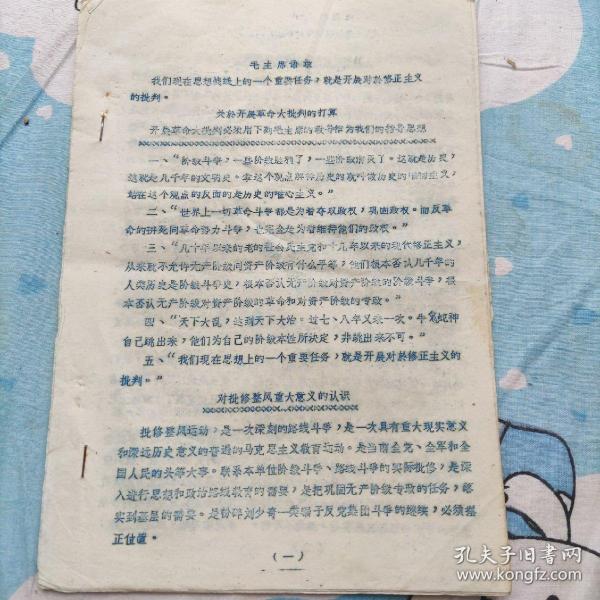 毛主席语录
我们现在思想战线上的一个重要任务，就是开展对於修正主义
的批判。
关於开展革命大批判的打算
开展革命大批判必须用下列毛主席的教导作为我们的指导思想
一、“阶级斗争，一些阶级胜利了，一些阶级消灭了。这就是历史，
这就是几千年的文明史。拿这个观点解释历史的就叫做历史的唯物主义，
站在这个观点的反面的是历史的唯心主义。”
二、“世界上一切革命斗争都是为着夺取政权，巩固政权。而反革
命的拼死同革命势力斗争，也完全是为着维持他们的政权。”
三、“几十年以来的老的社会民主党和十几年以来的现代修正主义，
从来就不允许无产阶级同资产阶级有什么平等，他们根本否认几千年的
人类历史是阶级斗争史，根本否认无产阶级对资产阶级的阶级斗争，根
本否认无产阶级对资产阶级的革命和对资产阶级的专政。”
四、“天下大乱，达到天下大治。过七、八年又来一次。牛鬼蛇神
自己跳出来，他们为自己的阶级本性所决定，非跳出来不可。”
五、“我们现在思想上的一个重要任务，就是开展对於修正主义的
批判。”
对批修整风重大意义的认识
批修整风运动，是一次深刻的路线斗争，是一次具有重大现实意义
和深远历史意义的普遍的马克思主义教育运动。是当前全党、全军和全
国人民的头等大事。联系本单位阶级斗争、路线斗争的实际批修，是深
入进行思想和政治路线教育的需要，是把巩固无产阶级专政的任务，落
实到基层的需要。是粉碎刘少奇一类骗子反党集团斗争的继续，必须摆
正位置。
（一）
孔夫子旧书网
www.kongfz.com